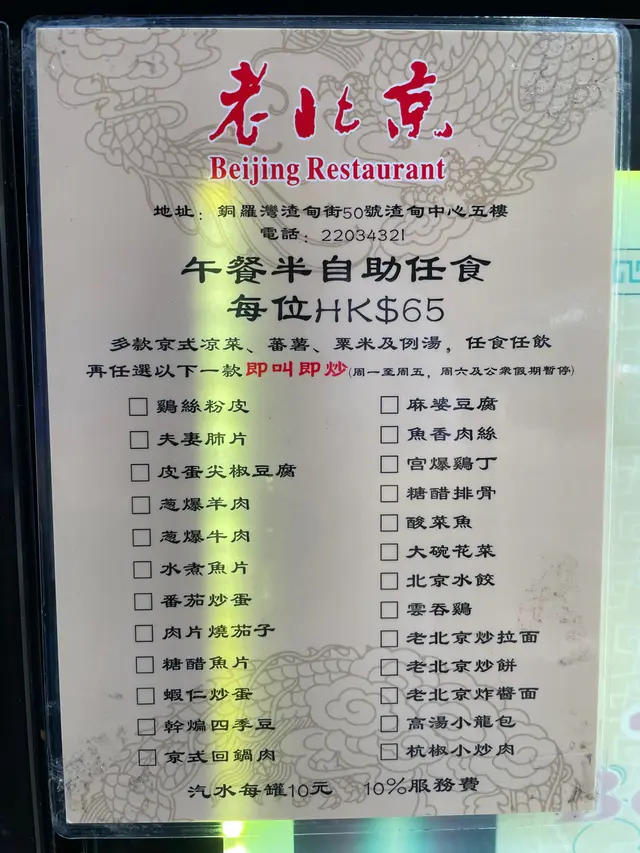 老北京
Beijing Restaurant
地址：銅羅灣渣甸街50號渣甸中心五樓
電話：22034321
午餐半自助任食
每位HK$65
多款京式凉菜、蕃薯、粟米及例湯，任食任飲
再任選以下一款即叫即炒(周一至周五，周六及公衆假期暫停)
□ 鷄絲粉皮
□ 夫妻肺片
□ 皮蛋尖椒豆腐
□ 葱爆羊肉
□ 葱爆牛肉
□ 水煮魚片
□ 番茄炒蛋
□ 肉片燒茄子
□ 糖醋魚片
□ 蝦仁炒蛋
□ 幹煸四季豆
□ 京式回鍋肉
□ 麻婆豆腐
□ 魚香肉絲
□ 宫爆鷄丁
□ 糖醋排骨
□ 酸菜魚
□ 大碗花菜
□ 北京水餃
□ 雲吞鷄
□ 老北京炒拉面
□ 老北京炒餅
□ 老北京炸醬面
□ 高湯小龍包
□ 杭椒小炒肉
汽水每罐10元 10%服務費